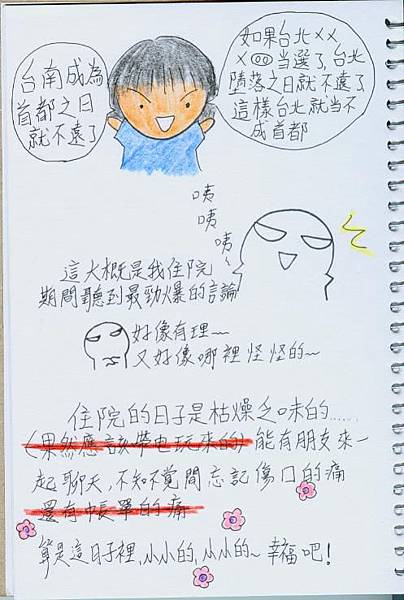 台南成為
首都之日
就不遠了
如果台北××
×◎◎当選了,台北
墮落之日就不遠了
這樣台北就当不
成首都
咦
咦
咦~
這大概是我住院
期間聽到最勁爆的言論
好像有理~~
又好像哪裡怪怪的~
住院的日子是枯燥乏味的......
(果然應該帶电玩來的)能有朋友來一
起聊天,不知不覚間忘記傷口的痛
還有帳單的痛
算是這日子裡,小小的,小小的~幸福吧!